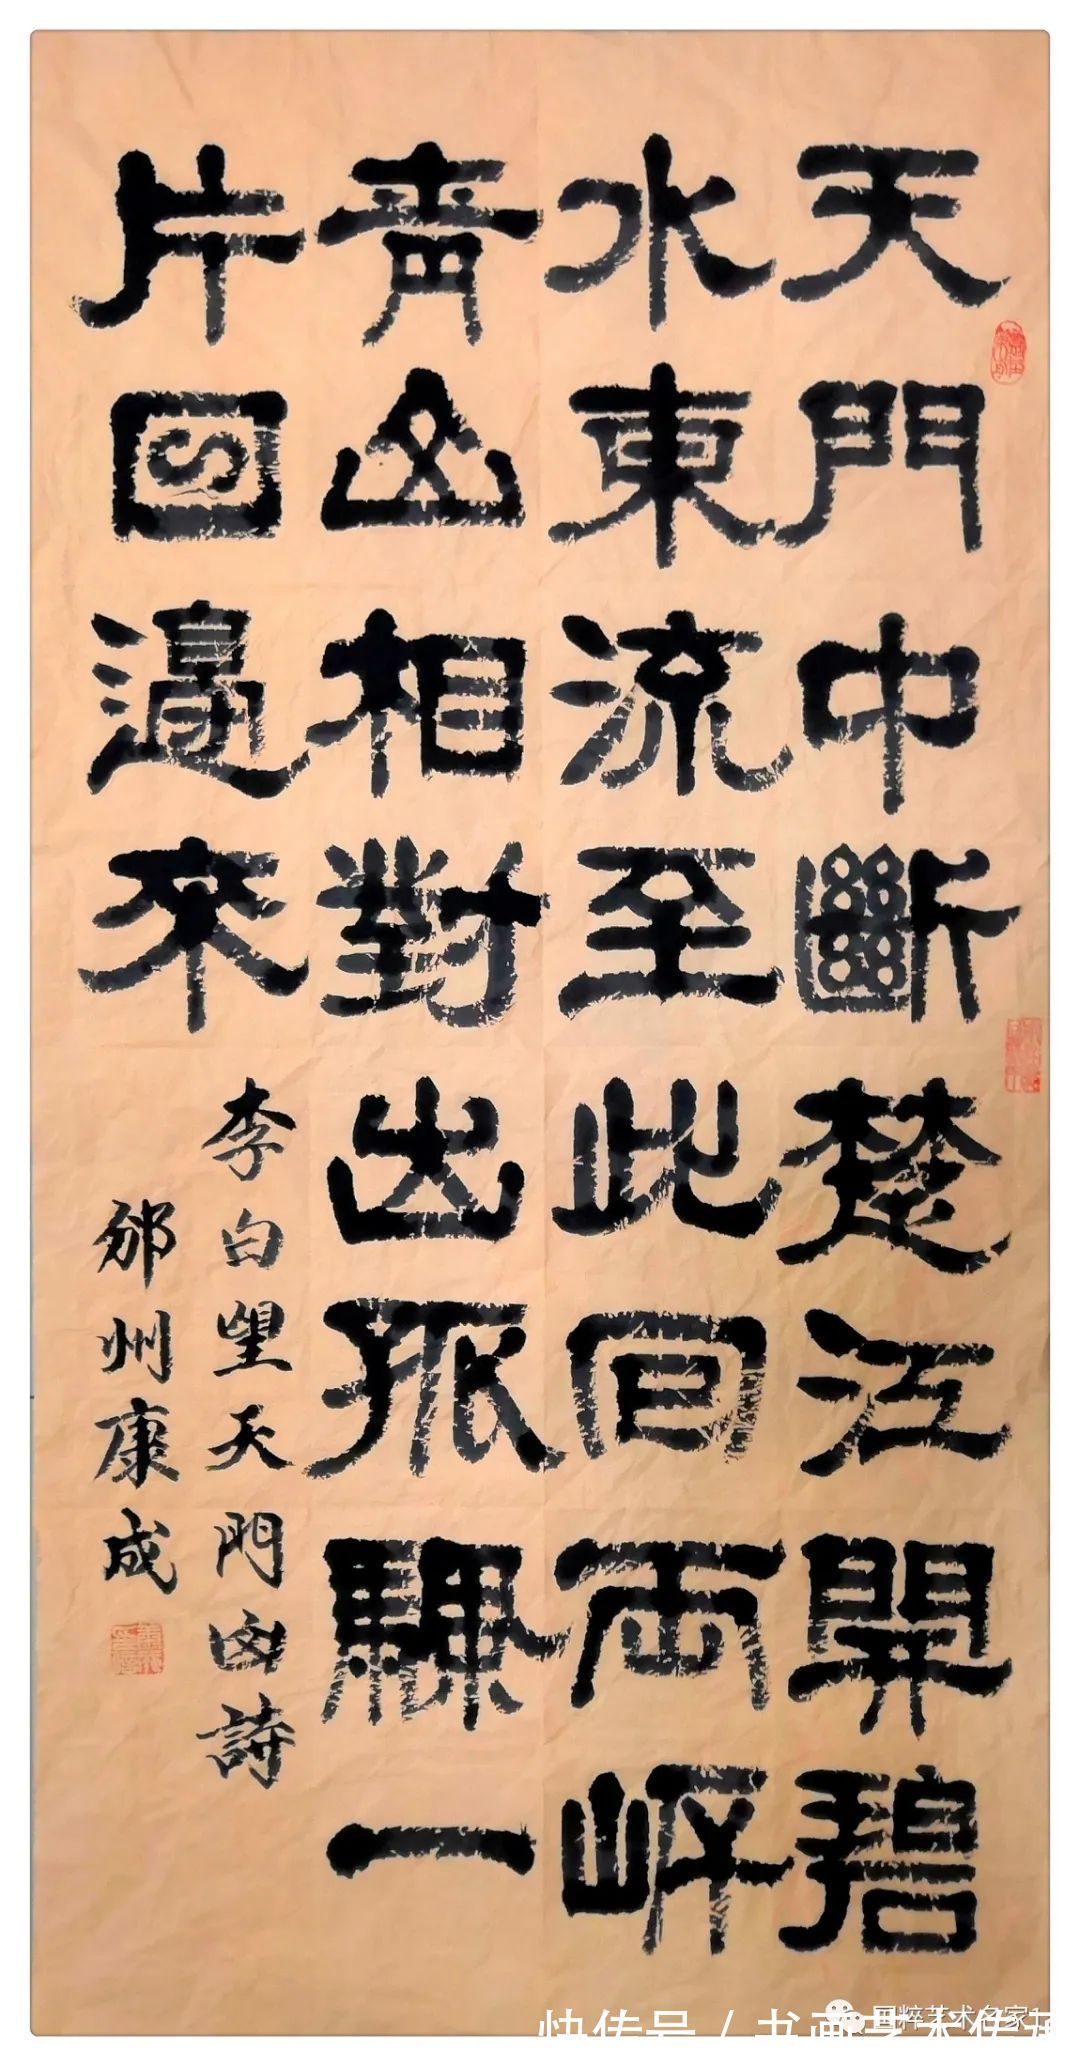 天門中斷楚江開碧
水東流至此回兩岸
青山相對出孤颿一
片日邊來
李白望天門山詩
邠州康成
国粹艺术名家1
快传号 / 书画艺术传